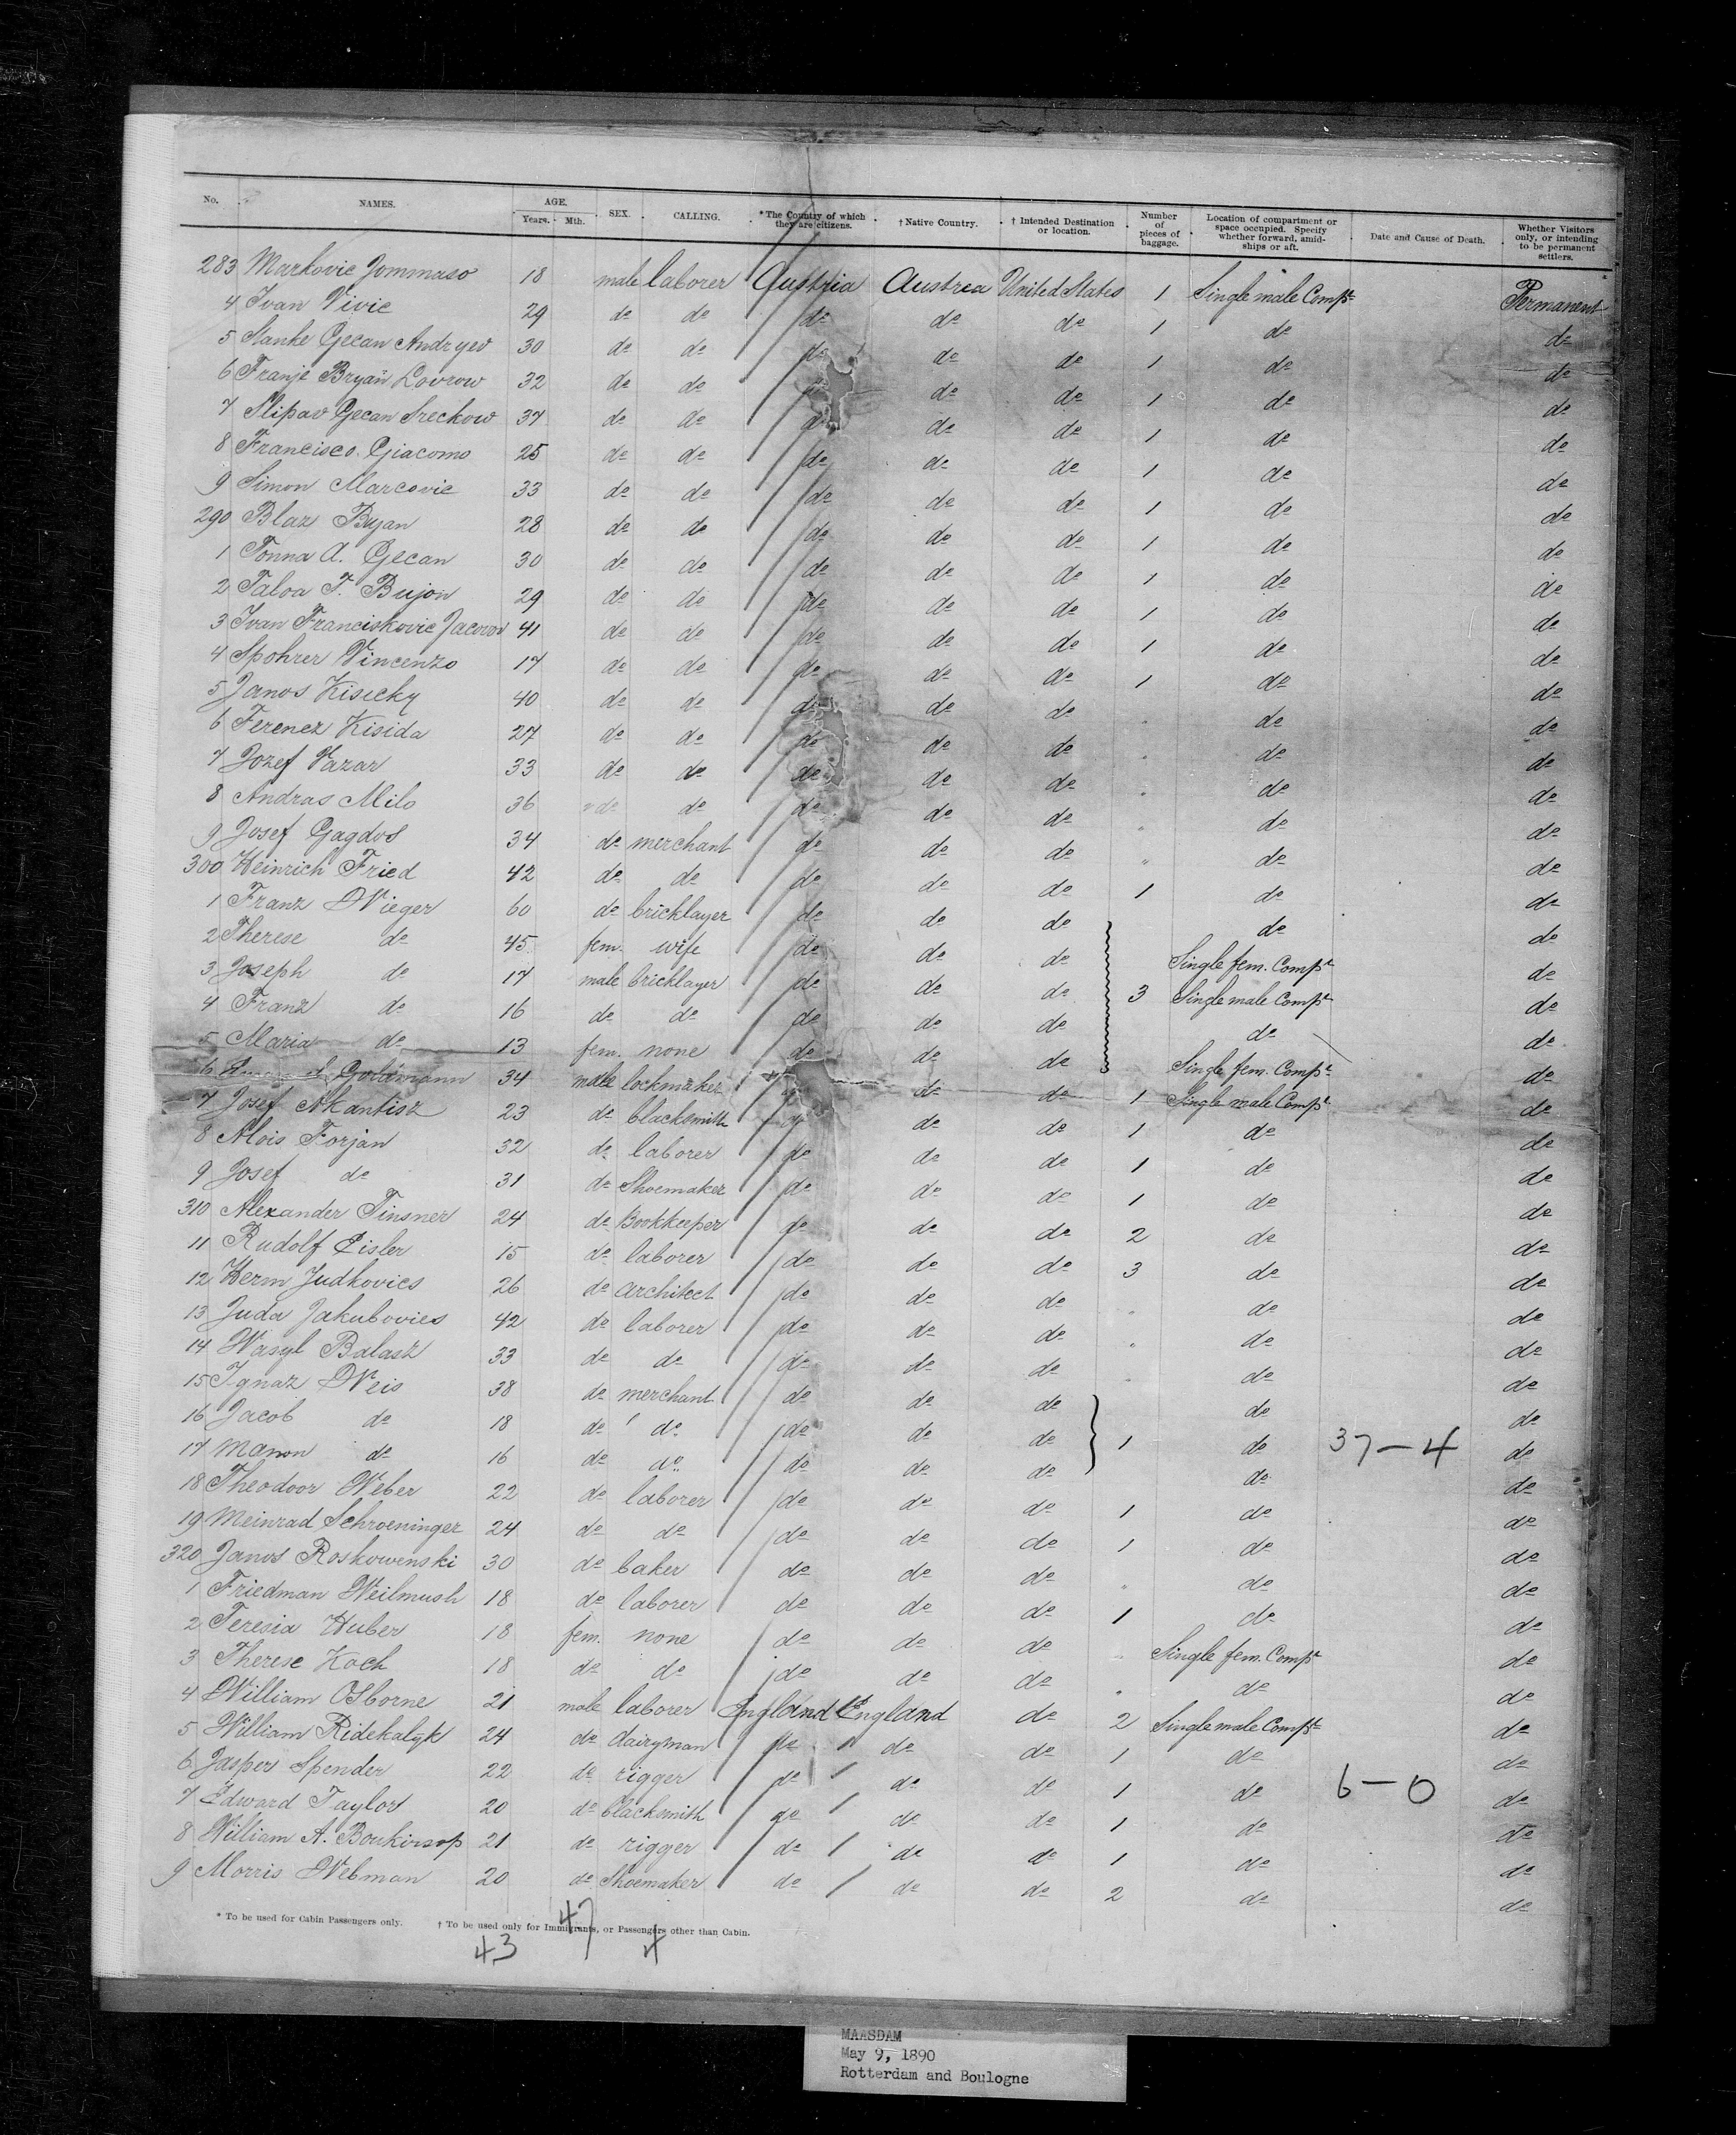 No. NAMES. AGE. Years. Mth. SEX. CALLING. *The Country of which they are citizens. † Native Country. † Intended Destination or location. Number of pieces of baggage. Location of compartment or space occupied. Specify whether forward, amidships or aft. Date and Cause of Death. Whether Visitors only, or intending to be permanent settlers.
283 Markovic Tommaso 18 male laborer Austria Austria United States 1 Single male Compt Permanent
4 Ivan Vivic 29 do do do do do 1 do do
5 Stanke Gecan Andryev 30 do do do do do 1 do do
6 Franje Bryan Lovrow 32 do do do do do 1 do do
7 Slipav Gecan Sreckow 37 do do do do do 1 do do
8 Francisco Giacomo 25 do do do do do 1 do do
9 Simon Marcovic 33 do do do do do 1 do do
290 Blaz Bujan 28 do do do do do 1 do do
1 Tonna A. Gecan 30 do do do do do 1 do do
2 Taloa T. Bujon 29 do do do do do 1 do do
3 Ivan Franciskovic Jacovov 41 do do do do do 1 do do
4 Spohrer Vincenzo 17 do do do do do 1 do do
5 Janos Kisicky 40 do do do do do " do do
6 Ferencz Kisida 27 do do do do do " do do
7 Jozef Vazar 33 do do do do do " do do
8 Andras Milo 36 do do do do do " do do
9 Josef Gagdos 34 do merchant do do do " do do
300 Heinrich Fried 42 do do do do do 1 do do
1 Franz Wieger 60 do bricklayer do do do do do
2 Therese do 45 fem. wife do do do Single fem. Compt do
3 Joseph do 17 male bricklayer do do do 3 Single male Compt do
4 Franz do 16 do do do do do do do
5 Maria do 13 fem. none do do do Single fem. Compt do
6 Goldmann 34 male lockmaker do do 1 Single male Compt do
7 Josef Nkantisz 23 do blacksmith do do do 1 do do
8 Alois Forjan 32 do laborer do do do 1 do do
9 Josef do 31 do Shoemaker do do do 1 do do
310 Alexander Tinsner 24 do Bookkeeper do do do 2 do do
11 Rudolf Eisler 15 do laborer do do do 3 do do
12 Herm Judkovics 26 do architect do do do " do do
13 Juda Jakubovics 42 do laborer do do do " do do
14 Wasyl Balasz 33 do do do do do " do do
15 Ignaz Weis 38 do merchant do do do do do
16 Jacob do 18 do do do do do 1 do 37-4 do
17 Manon do 16 do do do do do do do
18 Theodoor Weber 22 do laborer do do do 1 do do
19 Meinrad Schroeninger 24 do do do do do 1 do do
320 Janos Roskowenski 30 do baker do do do " do do
1 Friedman Weilmush 18 do laborer do do do 1 do do
2 Teresia Huber 18 fem. none do do do " Single fem. Compt do
3 Therese Koch 18 do do do do do " do do
4 William Osborne 21 male laborer England England do 2 Single male Compt do
5 William Ridekalgk 24 do dairyman do do do 1 do do
6 Jasper Spender 22 do rigger do do do 1 do 6-0 do
7 Edward Taylor 20 do blacksmith do do do 1 do do
8 William A. Boukirsop 21 do rigger do do do 1 do do
9 Morris Webman 20 do Shoemaker do do do 2 do do
* To be used for Cabin Passengers only. † To be used only for Immigrants, or Passengers other than Cabin.
47
43 4
MAASDAM
May 9, 1890
Rotterdam and Boulogne